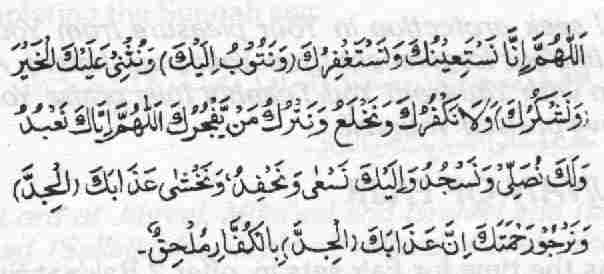 اَللّٰهُمَّ اِنَّا نَسْتَعِيْنُكَ وَنَسْتَغْفِرُكَ (وَنَتُوْبُ اِلَيْكَ) وَنُثْنِيْ عَلَيْكَ الْخَيْرَ
(وَنَشْكُرُكَ) وَلَا نَكْفُرُكَ وَنَخْلَعُ وَنَتْرُكُ مَنْ يَّفْجُرُكَ اَللّٰهُمَّ اِيَّاكَ نَعْبُدُ
وَلَكَ نُصَلِّيْ وَنَسْجُدُ وَاِلَيْكَ نَسْعٰى وَنَحْفِدُ، وَنَخْشٰى عَذَابَكَ (الْجِدَّ)
وَنَرْجُوْ رَحْمَتَكَ اِنَّ عَذَابَكَ (الْجِدَّ) بِالْكُفَّارِ مُلْحِقٌ۔